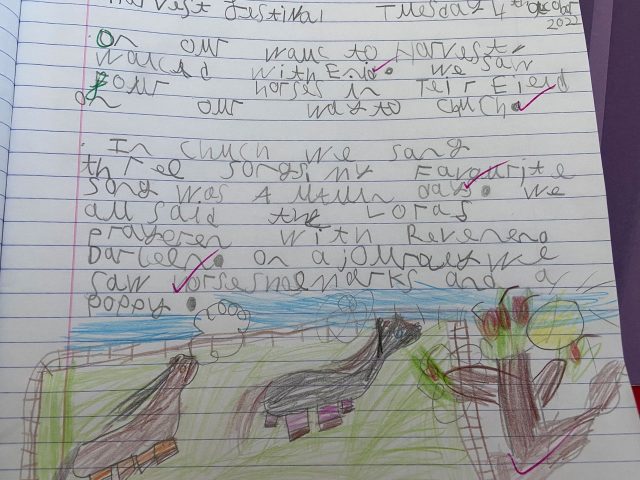 Harvest Festival Tuesday 4th October 2022
On our walk to Harvest
walked with Enid. We saw
Four horses in Teir Field
on our way to Chuch.
In Chuch we sang
three songs, my Favourite
song was Autumn days. We
all said the Loras
prayeren with Reverend
Darleen. on a journey we
saw horseshoe marks and a
poppy.